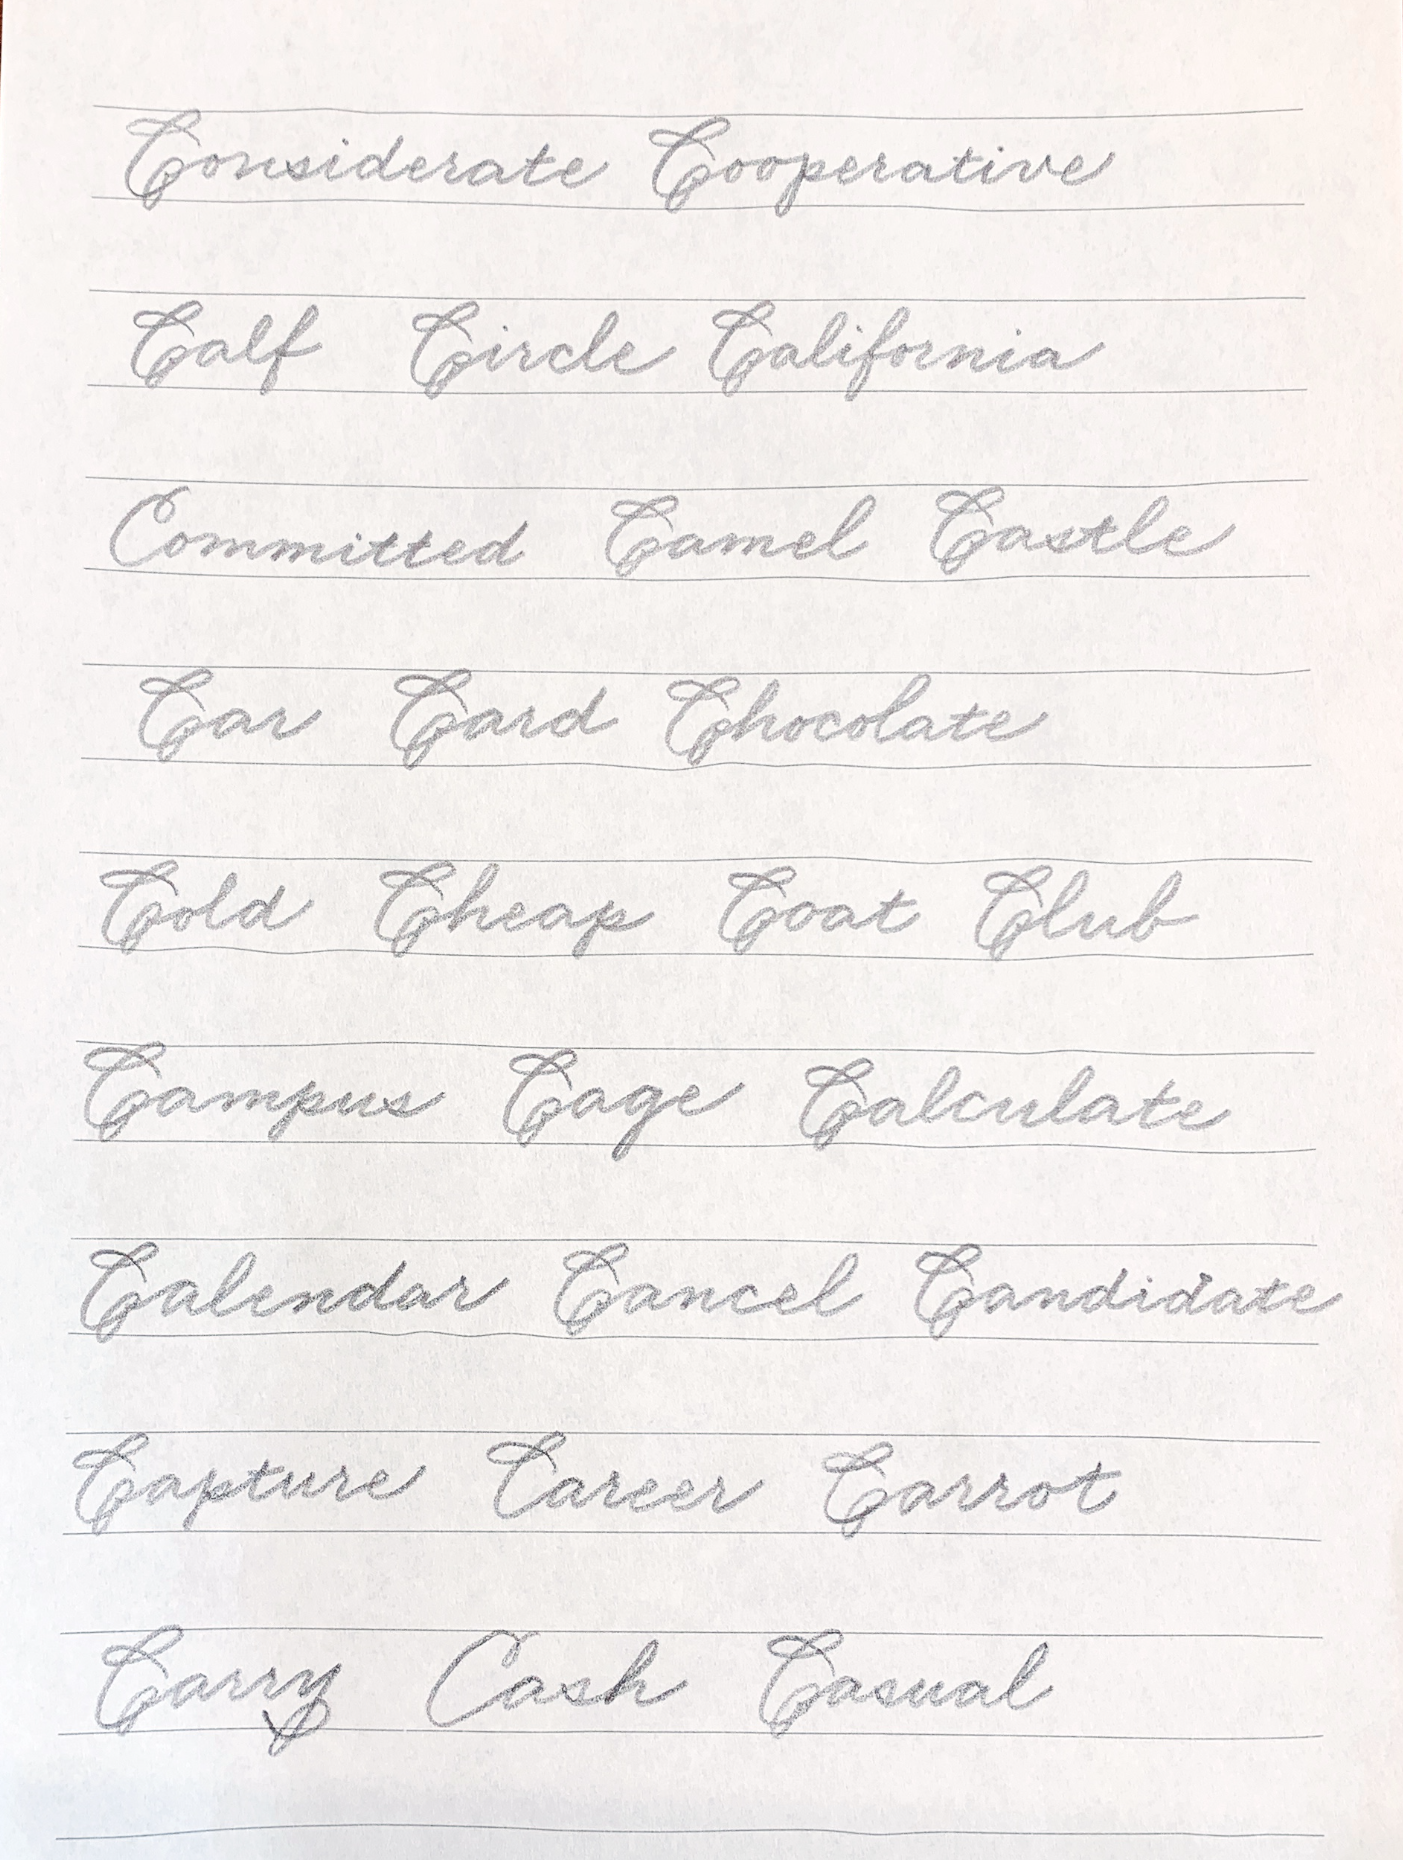 Considerate Cooperative
Calf Circle California
Committed Camel Castle
Car Card Chocolate
Cold Cheap Coat Club
Campus Cage Calculate
Calendar Cancel Candidate
Capture Career Carrot
Carry Cash Casual